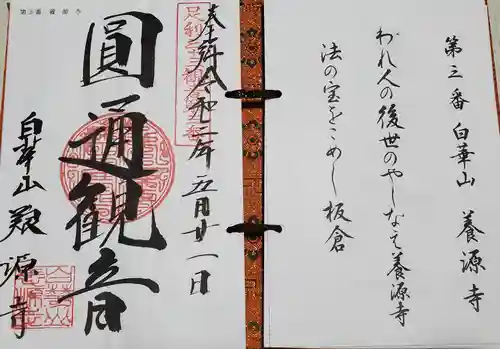 第三番 白華山 養源寺
われ人の後世のやしなえ養源寺
法の宝をこめし板倉
第三番 養源寺
奉拝 令和二年五月廿一日
圓通観音
白華山 養源寺